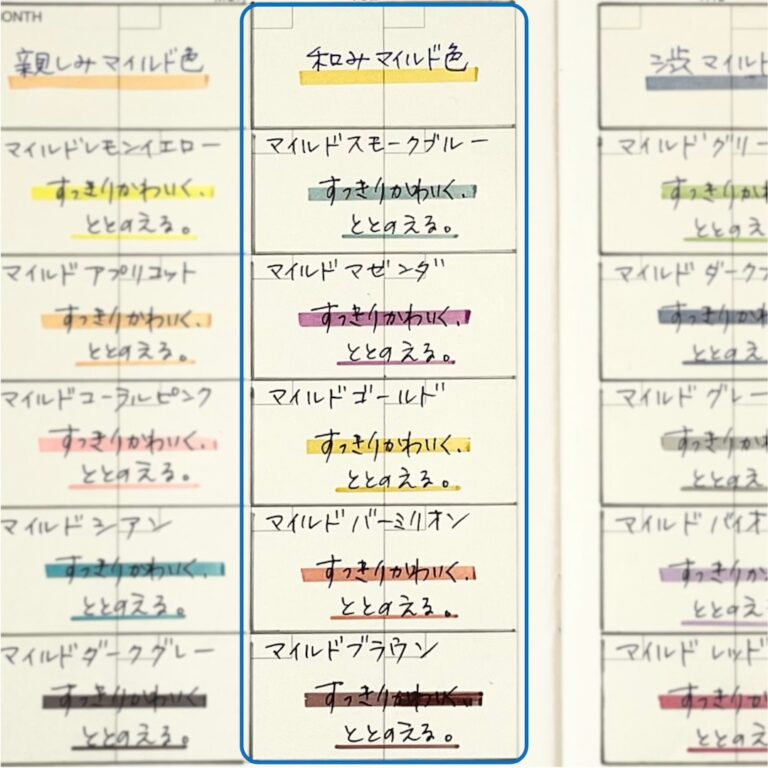 ONTH
親しみマイルド色
マイルドレモンイエロー
すっきりかわいく、
ととのえる。
マイルドアプリコット
すっきりかわいく、
ととのえる。
マイルドコーラルピンク
すっきりかわいく、
ととのえる。
マイルドシアン
すっきりかわいく、
ととのえる。
マイルドダークグレー
すっきりかわいく
ととのえる。
和みマイルド色
マイルドスモークブルー
すっきりかわいく、
ととのえる。
マイルドマゼンダ
すっきりかわいく、
ととのえる。
マイルドゴールド
すっきりかわいく、
ととのえる。
マイルドバーミリオン
すっきりかわいく、
ととのえる。
マイルドブラウン
すっきりかわいく、
ととのえる。
渋マイルド
マイルドグリー
すっきりか
ととのえ
マイルドダーク
すっきりか
ととのえ
マイルドグレー
すっきりか
ととのえ
マイルドバイオ
すっきりか
ととのえ
マイルドレッド
すっきりか
ととのえ